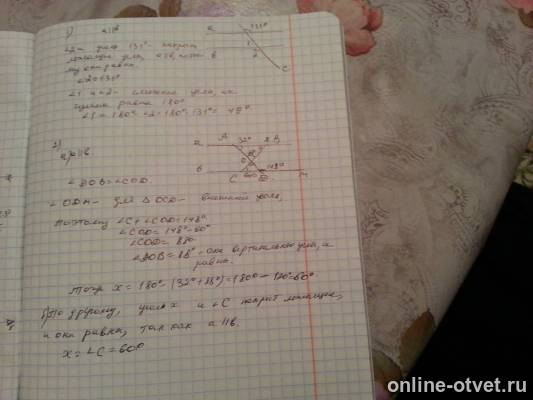 1) a||b
a 131°
∠2 и угол 131° - накрест
лежащие углы, a||b, поэто b
му они равны.
1
2
C
∠2=131°
∠1 и ∠2 - смежные углы, их
сумма равна 180°
∠1=180°-∠2=180°-131°=49°
2)
a||b.
a A 32° x B
O
b C 60° D 148° M
∠AOB=∠COD.
∠ODM - для △OCD - внешний угол,
Поэтому ∠C+∠COD=148°
∠COD=148°-60°
∠COD=88°
∠AOB=88°, они вертикальные углы, и
равны.
Тогда x=180°-(32°+88°)=180°-120°=60°
По другому, угол x и ∠C накрест лежащие,
и они равны, так как a||b.
x=∠C=60°
online-otvet.ru